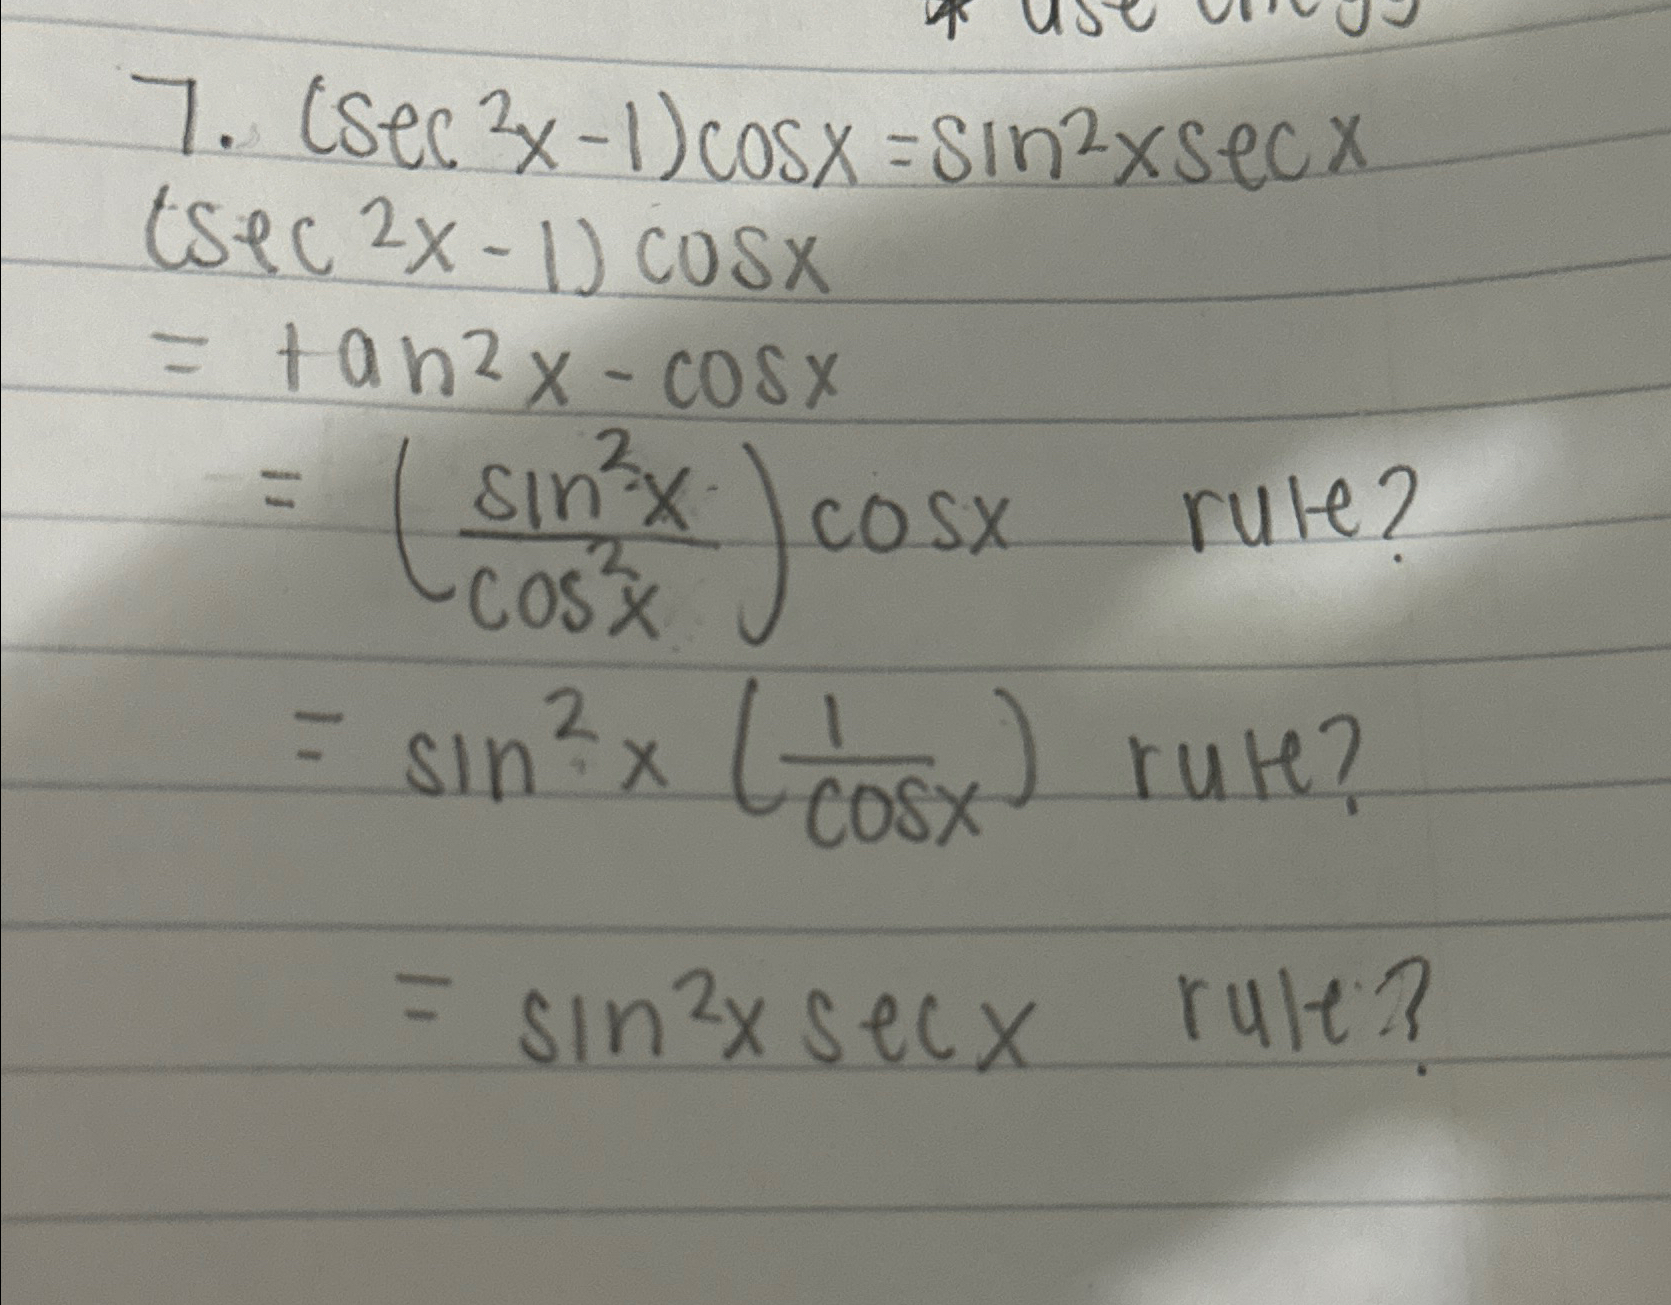 * use
7. (sec²x-1)cosx=sin²xsecx
(sec²x-1)cosx
= tan²x-cosx
= (sin²x/cos²x)cosx rule?
= sin²x(1/cosx) rule?
= sin²xsecx rule?